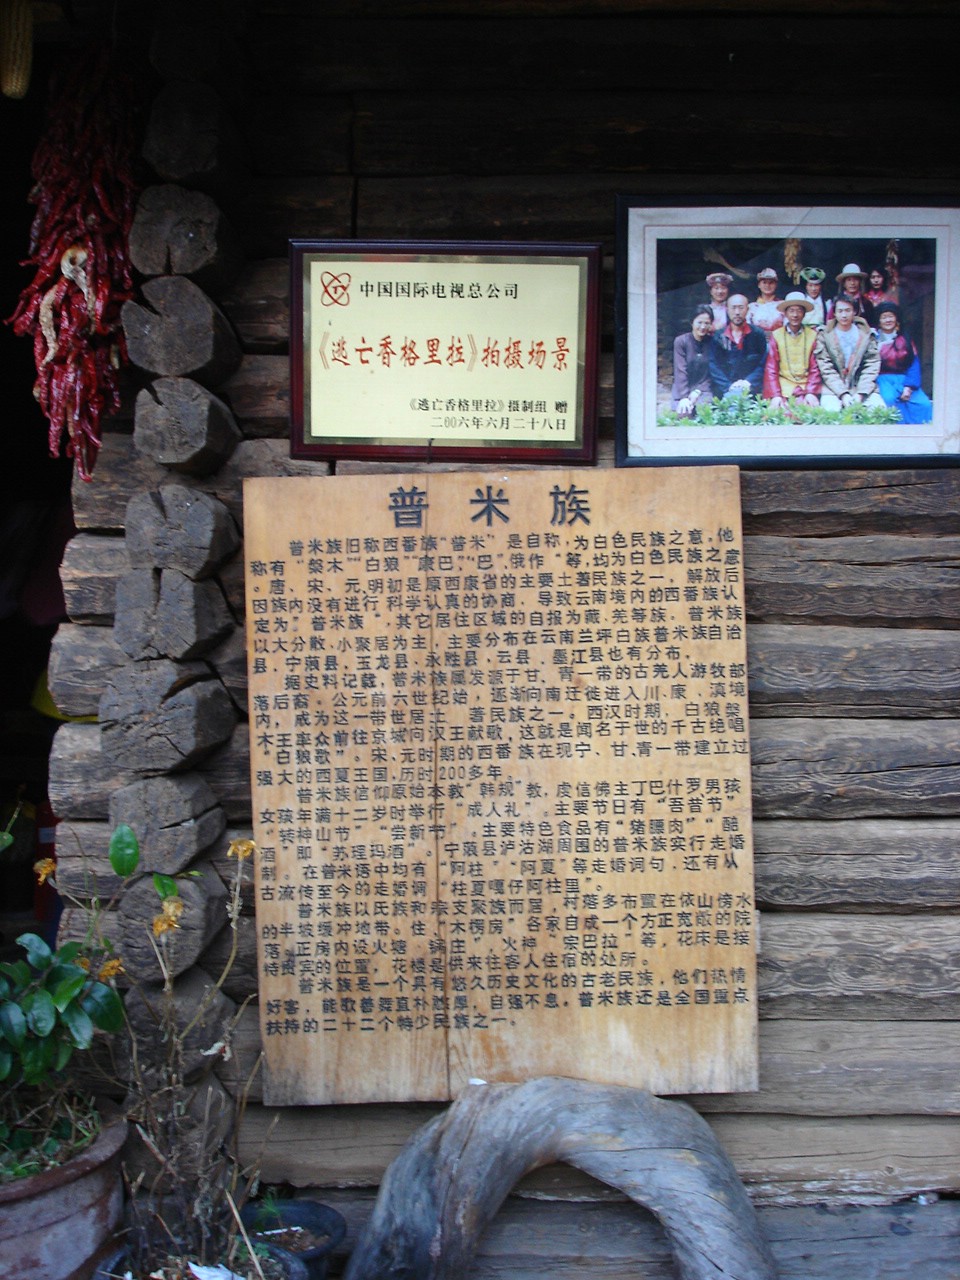 中国国际电视总公司
《逃亡香格里拉》拍摄场景
《逃亡香格里拉》摄制组 赠
二00六年六月二十八日
普 米 族
普米族旧称西番族“普米”是自称,为白色民族之意。他
称有“槃木”“白狼”“康巴”,“巴”,俄作“等,均为白色民族之意
。唐、宋、元,明初是原西康省的主要土著民族之一,解放后
因族内没有进行科学认真的协商,导致云南境内的西番族认
定为“普米族”,其它居住区域的自报为藏、羌等族。普米族
以大分散,小聚居为主,主要分布在云南兰坪白族普米族自治
县,宁蒗县,玉龙县,永胜县,云县,墨江县也有分布。
据史料记载,普米族属发源于甘,青一带的古羌人游牧部
落后裔。公元前六世纪始,逐渐向南迁徙进入川、康、滇境
内,成为这一带世居土 著民族之一。西汉时期,白狼槃
木王率众前往京城向汉王献歌,这就是闻名于世的千古绝唱
“白狼歌”。宋、元时期的西番族在现宁、甘、青一带建立过
强大的西夏王国,历时200多年。
普米族信仰原始本教“韩规”教,虔信佛主丁巴什罗男孩
女孩年满十二岁时举行“成人礼”。主要节日有“吾昔节”
“转神山节”“尝新节”。主要特色食品有“猪膘肉”“醅
酒”即“苏理玛酒”。宁蒗县泸沽湖周围的普米族实行走婚
制。在普米语中均有“阿柱”“阿夏”等走婚词句,还有从
古流传至今的走婚调“柱夏嘎仔阿柱里”。
普米族以氏族和宗支聚族而居,村落多布置在依山傍水
的半坡缓冲地带。住,“木楞房”各家自成一个方正宽敞的院
落。正房内设火塘,“锅庄”,火神“宗巴拉”等,花床是接
待贵宾的位置,花楼是供来往客人住宿的处所。
普米族是一个具有悠久历史文化的古老民族,他们热情
好客,能歌善舞直朴敦厚,自强不息。普米族还是全国重点
扶持的二十二个特少民族之一。